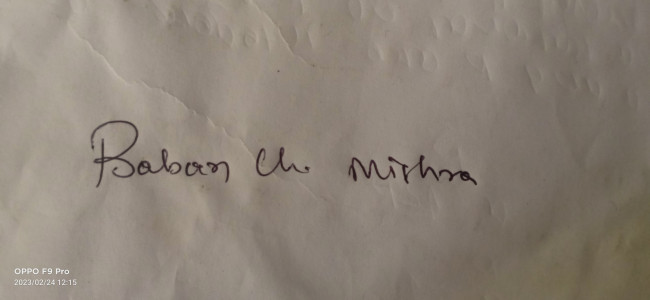 Baban Ch. Mishra
OPPO F9 Pro
2023/02/24 12:15